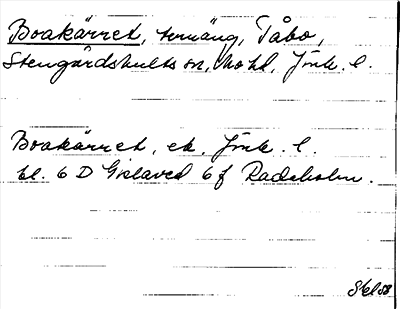 Boakärret, terräng, Tåbo,
Stengårdshults sn, Mo hd, Jönk. l.
Boakärret, ek. Jönk. l.
bl. 6 D Gislaved 6 f Radeholm.
Skl 58